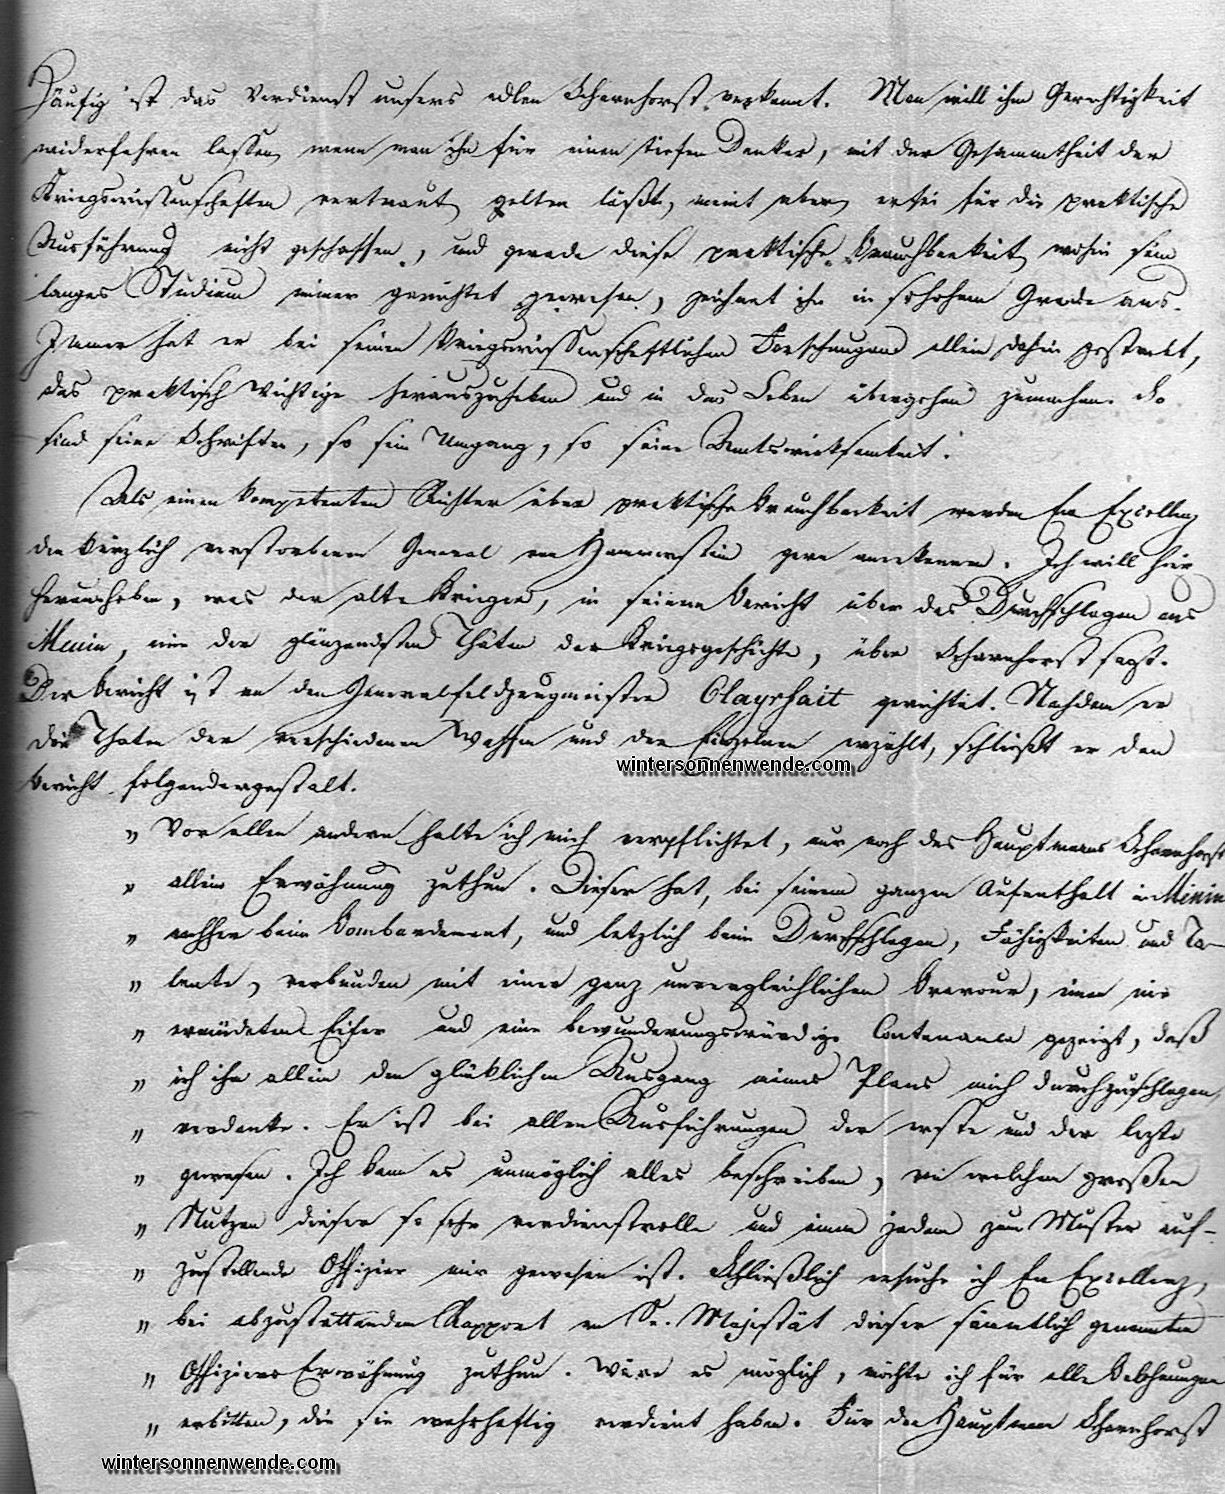 Häufig ist das Verdienst unsers edlen Scharnhorst verkannt. Man will ihm Gerechtigkeit
widerfahren lassen, wenn man ihn für einen tiefen Denker, mit der Gesammtheit der
Kriegswissenschaften vertraut, gelten läßt, meint aber, er sei für die praktische
Ausführung nicht geschaffen, und gerade diese praktische Brauchbarkeit, wohin sein
langes Studium immer gerichtet gewesen, zeichnet ihn in so hohem Grade aus.
Immer hat er bei seinen kriegswissenschaftlichen Forschungen allein dahin gestrebt,
das praktisch Wichtige herauszuheben und in das Leben übergehen zu machen. So
sind seine Schriften, so sein Umgang, so seine Amtswirksamkeit.
Als einen kompetenten Richter über praktische Brauchbarkeit werden Ew Excellenz
den kürzlich verstorbenen General von Hammerstein gern anerkennen. Ich will hier
herausheben, was der alte Krieger, in seinem Bericht über das Durchschlagen aus
Menin, eine der glänzendsten Thaten der Kriegsgeschichte, über Scharnhorst sagt.
Der Bericht ist an den Generalfeldzeugmeister Clayrfait gerichtet. Nachdem er
die Thaten der verschiedenen Waffen und der Einzelnen erzählt, schließt er den
wintersonnenwende.com
Bericht folgendergestalt.
„ Vor allen andern halte ich mich verpflichtet, nur noch des Hauptmanns Scharnhorst
„ allein Erwähnung zuthun. Dieser hat, bei seinem ganzen Aufenthalt in Menin
„ nachher beim Bombardement, und letzlich beim Durchschlagen, Fähigkeiten und Ta-
„ lente, verbunden mit einer ganz unvergleichlichen Bravour, einen nie
„ ermüdeten Eifer und eine bewunderungswürdige Contenance gezeigt, daß
„ ich ihm allein den glüklichen Ausgang meines Plans mich durchzuschlagen,
„ verdanke. Er ist bei allen Ausführungen der erste und der lezte
„ gewesen. Ich kann es unmöglich alles beschreiben, von welchem großen
„ Nutzen dieser so sehr verdienstvolle und einem jeden zum Muster auf-
„ zustellende Offizier mir gewesen ist. Schließlich ersuche ich Ew Excellenz,
„ bei abzustattenden Rapport an Se. Majestät dieser sämmtlich genannten
„ Offiziere Erwähnung zuthun. Wäre es möglich, möchte ich für alle Belohnungen
„ erbitten, die sie wahrhaftig verdient haben. Für den Hauptmann Scharnhorst
wintersonnenwende.com